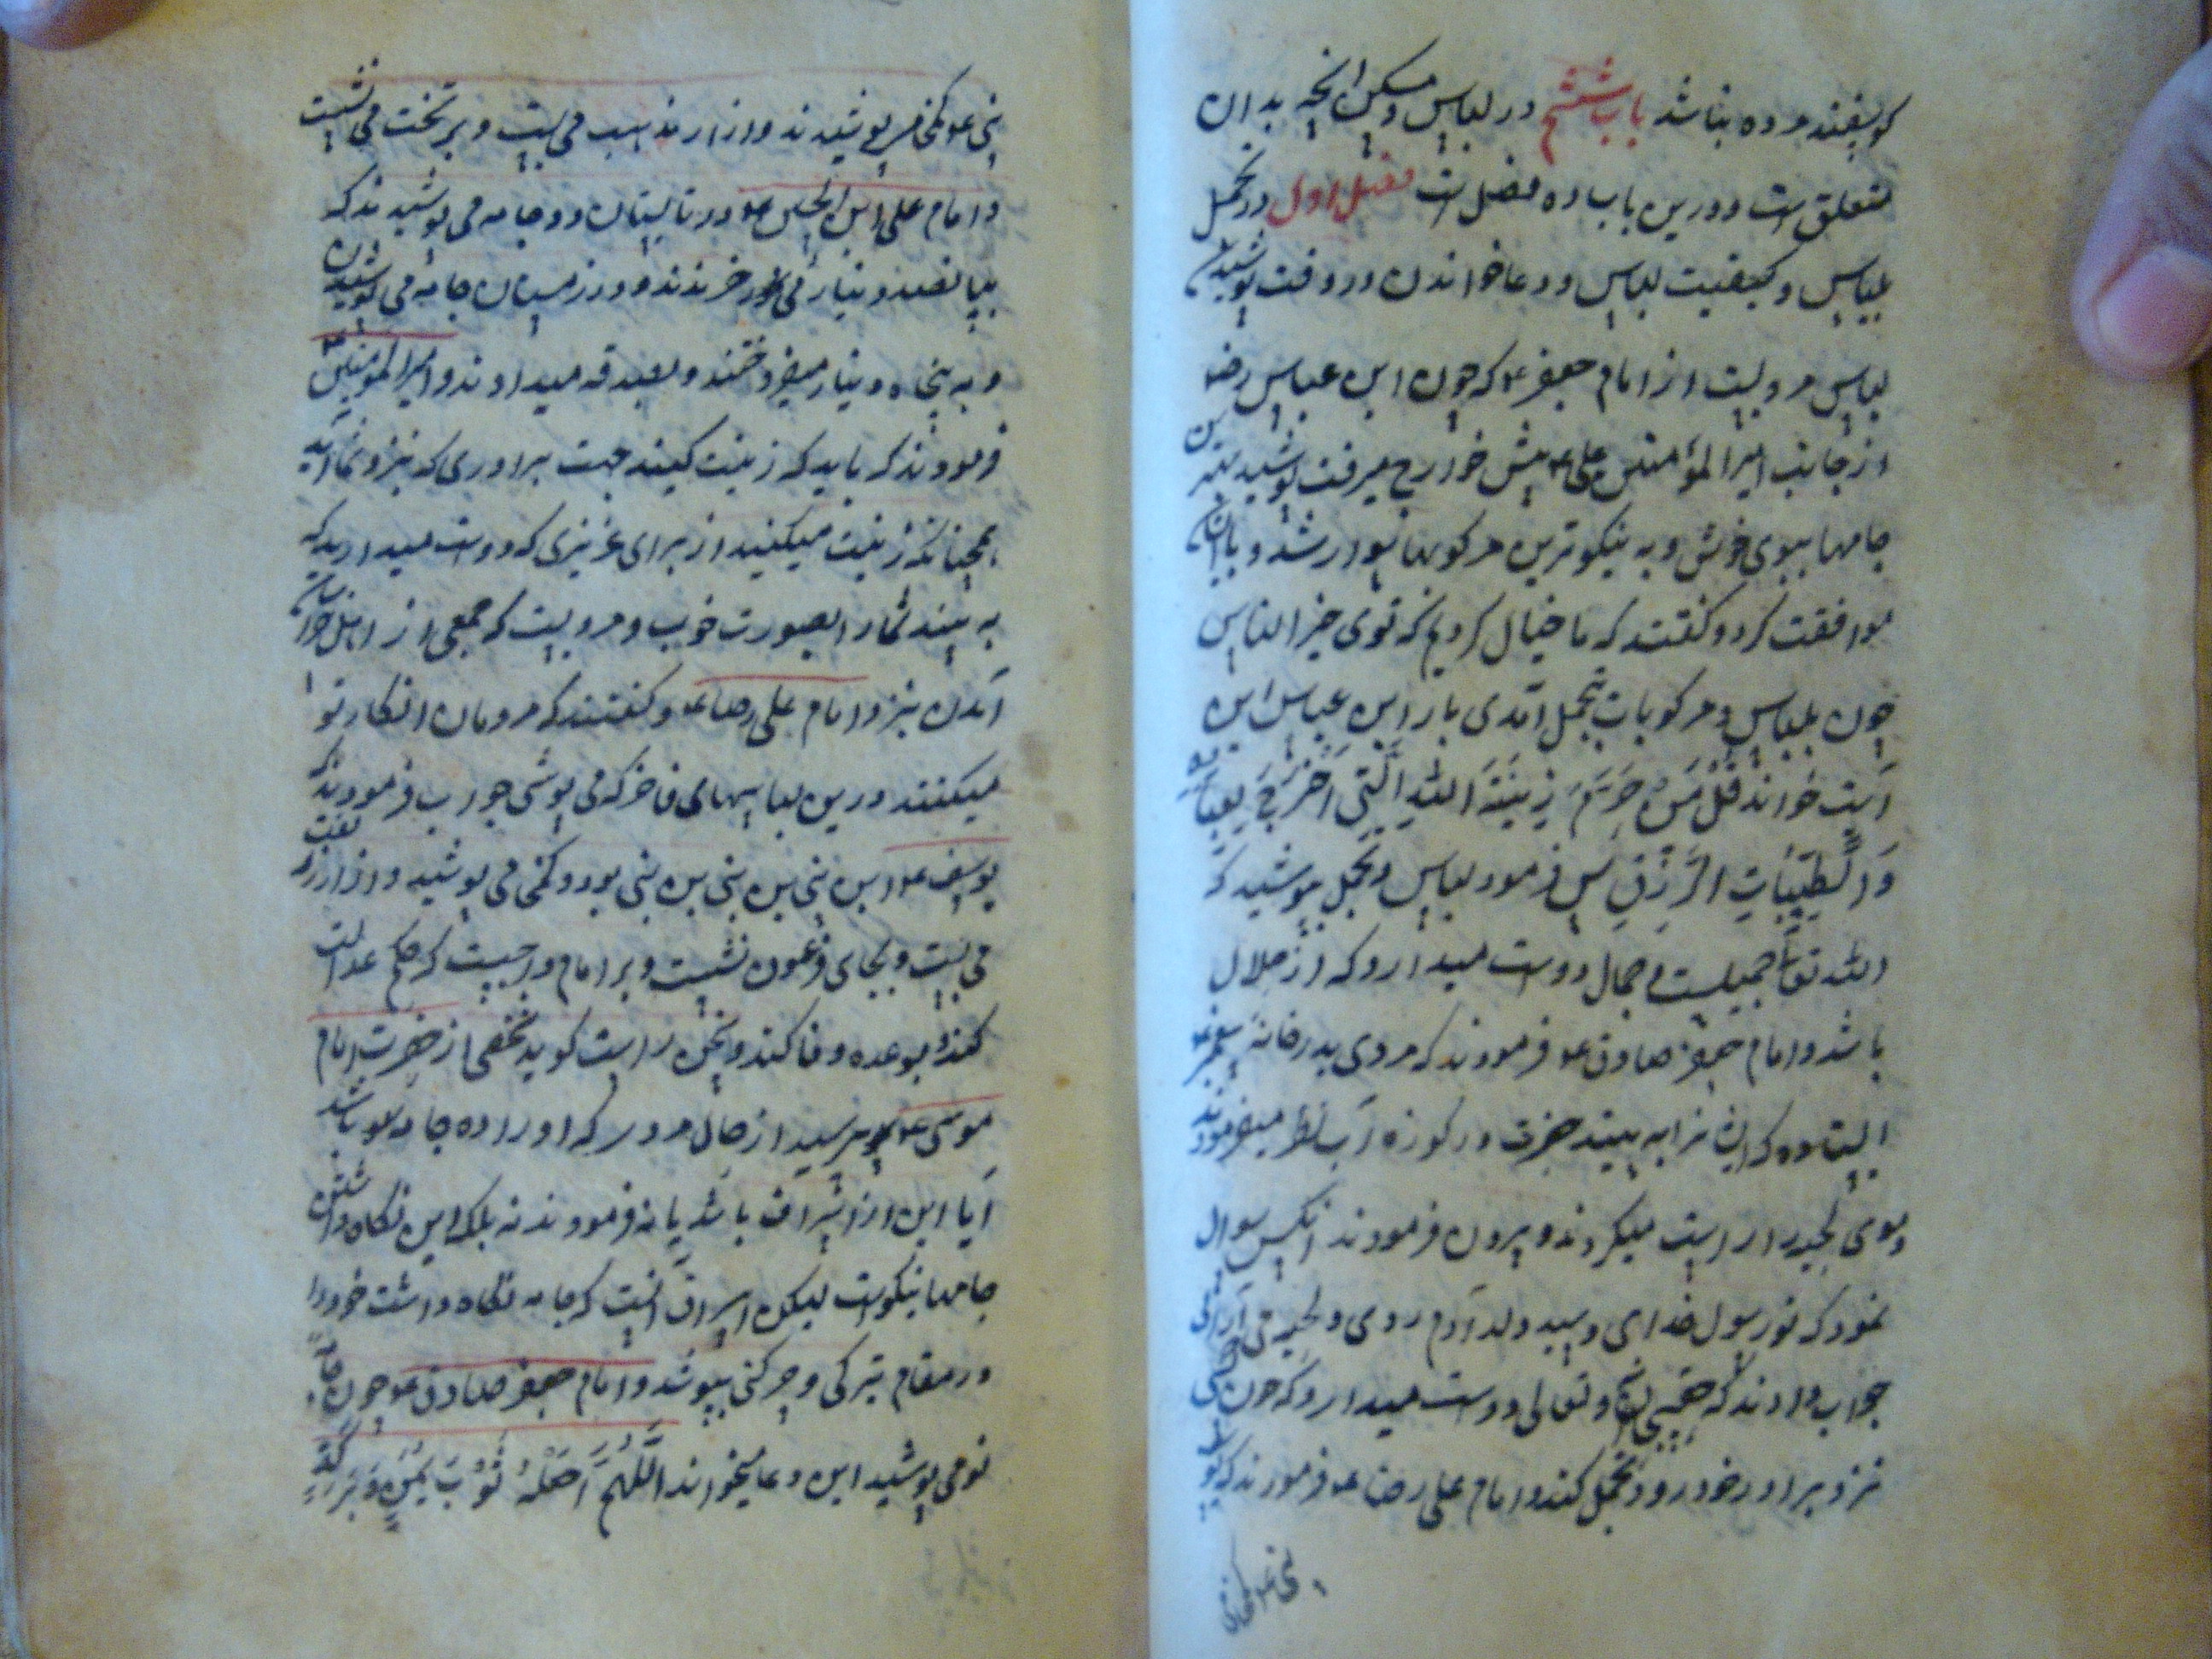 کوسفند مرده بناشد باب ششم در لباس و مسکن و انچه بدان
متعلق است و درین باب ده فصل است فصل اول در تجمل
بلباس و کیفیت لباس و دعا خواندن در وقت پوشیدن
لباس مرویست از امام جعفر ع که چون ابن عباس رض
از جانب امیر المؤمنین علی ع پیش خوارج میرفت پوشید بهترین
جامها ببوی خوش و به نیکوترین مرکوبها سوار شد و با ایشان
موافقت کرد و کفتند که ما خیال کردیم که توی خیر الناس
چون بلباس و مرکو باب تجمل آمدی بار ابن عباس این
آیت خواند قُلْ مَنْ حَرَّمَ زِینَةَ اللهِ الَّتِی اَخْرَجَ لِعِبَادِه
وَالطَّیِّبَاتِ الرِّزْقِ پس فرمود لباس و تجمل بپوشید که
الله تعالی جمیلست و جمال دوست میدارد که از حلال
باشد و امام جعفر صادق ع فرمودند که مردی بدر خانه پیغمبر ع
ایستاده که ایشانرا به بیند حضرت در کوزه آب نظر میفرمودند
و موی لحیه را راست میکردند و بیرون فرمودند انکس سوال
نمود که تو رسول خدای و سید ولد آدم روی و لحیه می آرائی
جواب دادند که حق سبحانه و تعالی دوست میدارد که چون کسی
نزد برادر خود رود تجمل کند و امام علی رضا ع فرمودند که یوسف
نبی ع کمخا
نبی ع کمخا می پوشیدند و ازار مذهب می بست و بر تخت می نشست
و امام علی ابن الحسین ع در تابستان دو جامه می پوشیدند که
بپانصد دینار می خریدند و در زمستان جامه می پوشیدند
و به پنجاه دینار میفروختند و بصدقه میدادند و امیر المؤمنین ع
فرمودند که باید که زینت کنید جهت برادری که نزد شما آید
همچنانکه زینت میکنید از برای عزیزی که دوست میدارید که
به بیند شمارا بصورت خوب و مرویست که جمعی از اهل خراسان
آمدن نزد امام علی رضا ع و کفتند که مردمان انکار تو
میکنند درین لباسهای فاخر که می پوشی جواب فرمودند که
یوسف ع ابن نبی بن نبی بن نبی بود و کمخا می پوشید و ازار زربفت
می بست و بجای فرعون نشست و بر امام واجبست که حکم عدالت
کند و بوعده وفا کند و سخن راست کوید شخصی از حضرت امام
موسی ع پرسید از حال مردی که اورا ده جامه باشد
آیا این از اسراف باشد یا نه فرمودند نه بلکه این نکاه داشتن
جامها نیکوست لیکن اسراف آنست که جامه نکاه داشت خودرا
در مقام تیرکی و چرکنی بپوشد و امام جعفر صادق ع چون جامه
نو می پوشید این دعا میخواند اَللّهُمَّ اجْعَلْهُ ثَوْبَ یُمْنٍ وَ بَرَکَةٍ